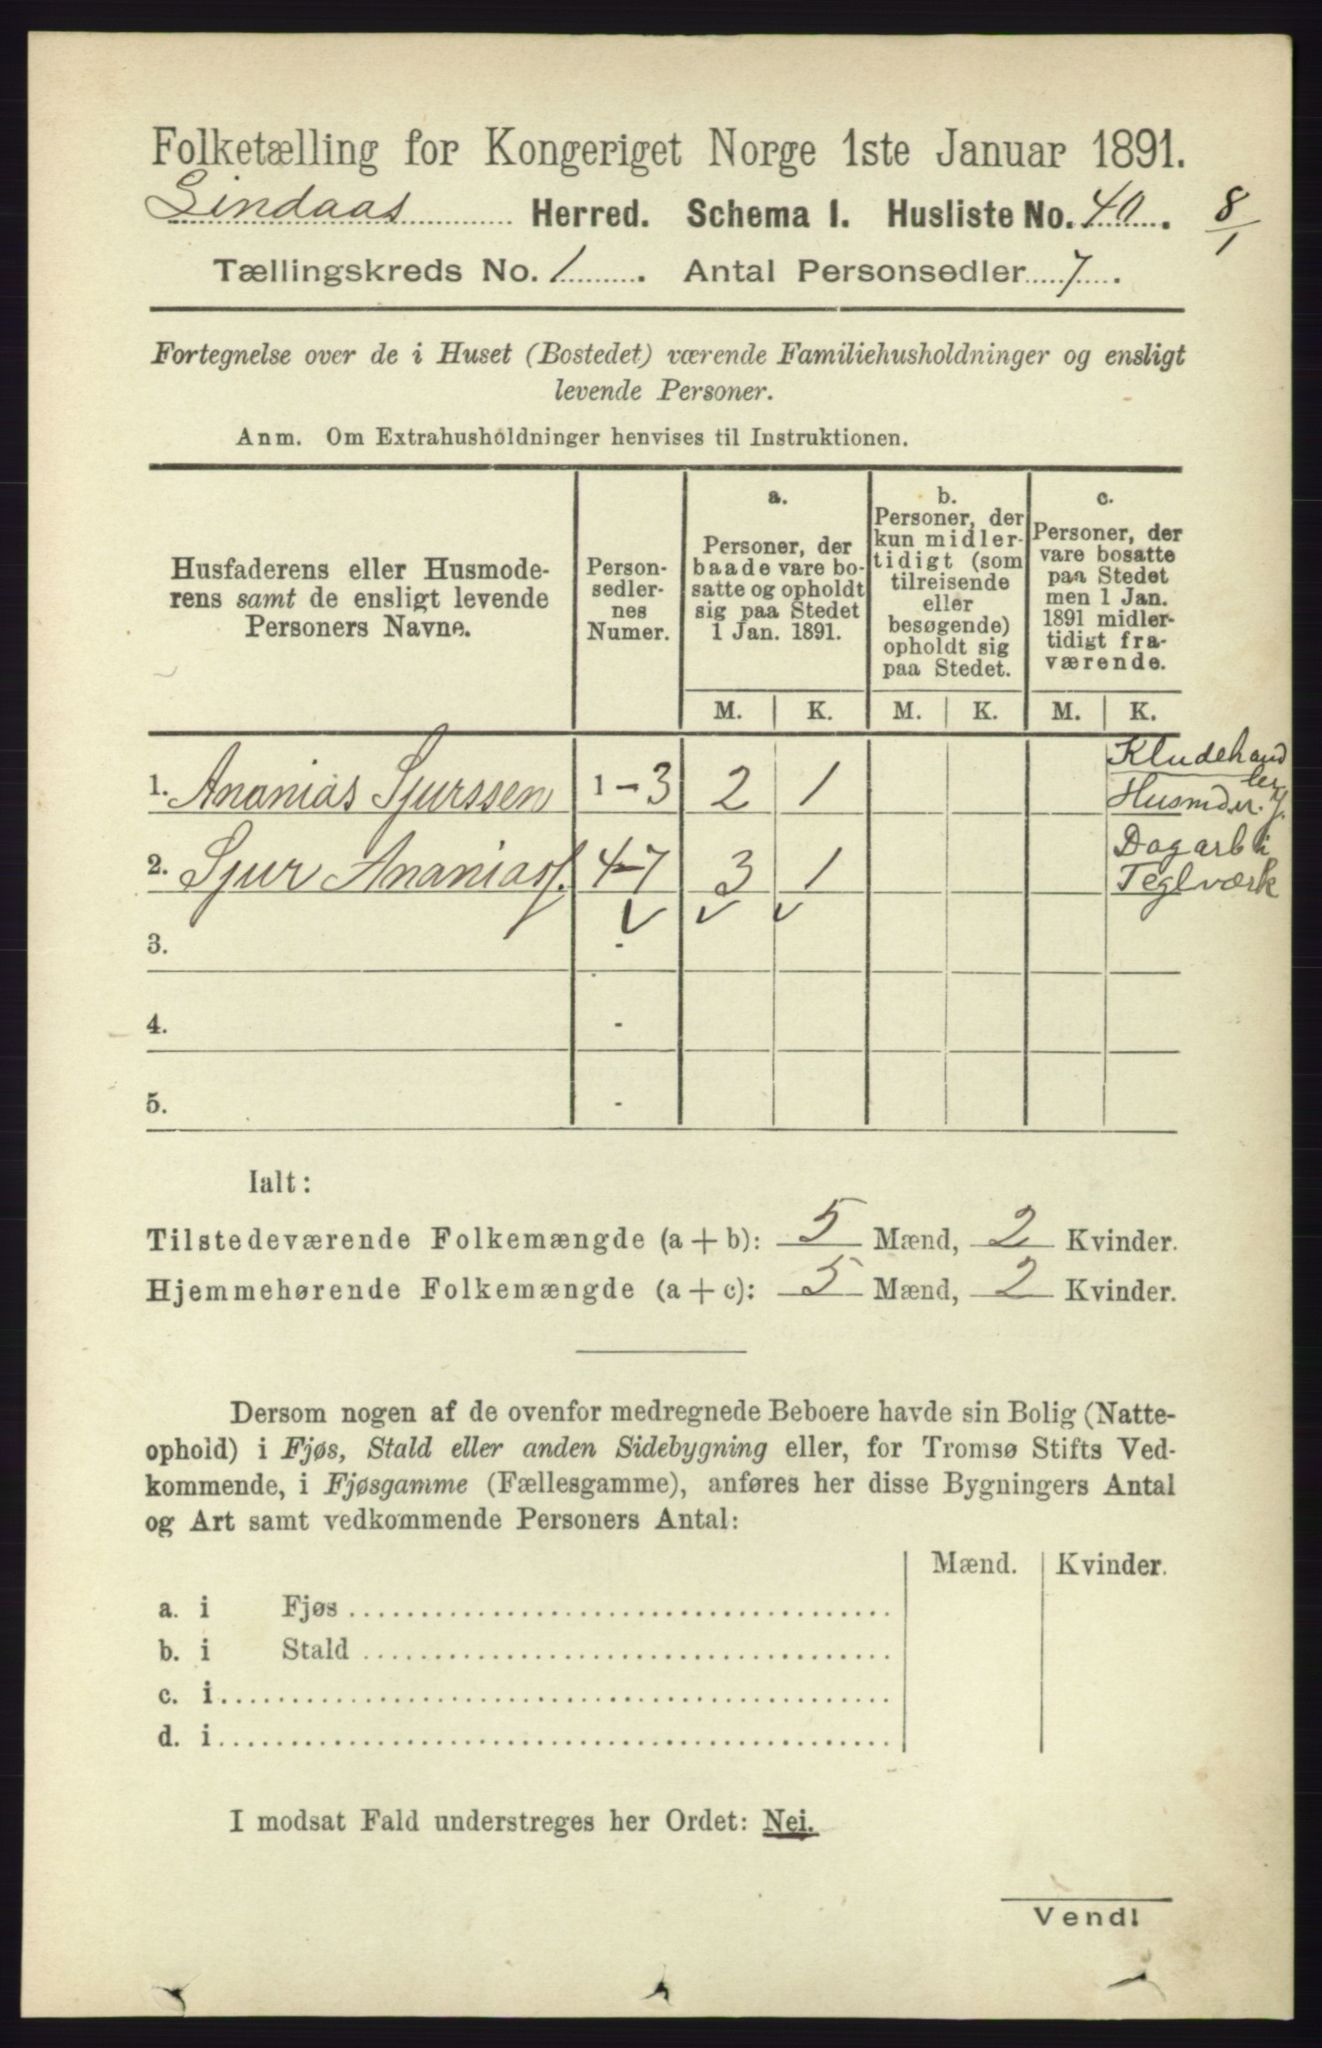 Folketælling for Kongeriget Norge 1ste Januar 1891.
Lindaas Herred. Schema 1. Husliste No. 40. 8/1
Tællingskreds No. 1. Antal Personsedler 7.
Fortegnelse over de i Huset (Bostedet) værende Familiehusholdninger og ensligt
levende Personer.
Anm. Om Extrahusholdninger henvises til Instruktionen.
Husfaderens eller Husmode-
rens samt de ensligt levende
Personers Navne.
Person-
sedler-
nes
Numer.
a.
Personer, der
baade vare bo-
satte og opholdt
sig paa Stedet
1 Jan. 1891.
b.
Personer, der
kun midler-
tidigt (som
tilreisende
eller
besøgende)
opholdt sig
paa Stedet.
c.
Personer, der
vare bosatte
paa Stedet
men 1 Jan.
1891 midler-
tidigt fra-
værende.
M. K. M. K. M. K.
1. Ananias Sjurssen 1-3 2 1 Kludehand
ler
Husmdr. J.
2. Sjur Ananiasf. 4-7 3 1 Dagarb i
Teglværk
3. -
4. -
5. -
Ialt:
Tilstedeværende Folkemængde (a + b): 5 Mænd, 2 Kvinder.
Hjemmehørende Folkemængde (a + c): 5 Mænd, 2 Kvinder.
Dersom nogen af de ovenfor medregnede Beboere havde sin Bolig (Natte-
ophold) i Fjøs, Stald eller anden Sidebygning eller, for Tromsø Stifts Ved-
kommende, i Fjøsgamme (Fællesgamme), anføres her disse Bygningers Antal
og Art samt vedkommende Personers Antal:
Mænd. Kvinder.
a. i Fjøs
b. i Stald
c. i
d. i
I modsat Fald understreges her Ordet: Nei.
Vend!